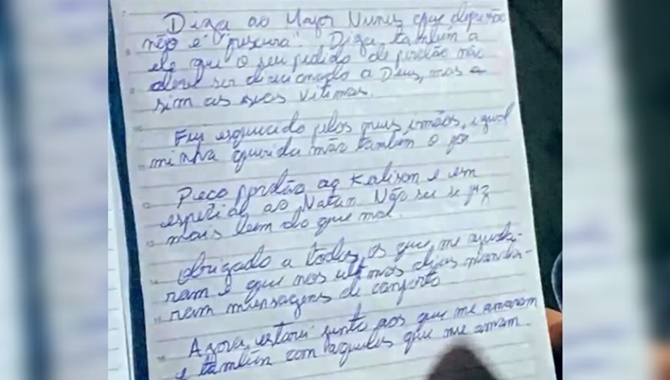 Diga ao Major Nunes que depressão
não é "frescura". Diga também a
ele que o seu pedido de perdão não
deve ser direcionado a Deus, mas
sim as suas vítimas.
Fui esquecido pelos meus irmãos, igual
minha querida mãe também o foi
Peço perdão ao Kalison e em
especial ao Natan. Não sei se fiz
mais bem do que mal.
Obrigado a todos os que me ajuda-
ram e que nos ultimos dias manda-
ram mensagens de conforto
Agora, estarei junto aos que me amaram
e também com aqueles que me amam.